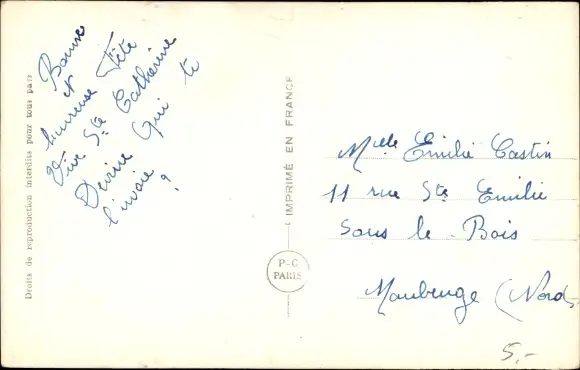 Bonne
et
heureuse Fête
Vive Ste Catherine
Devine Qui te
l'envoie ?
Droits de reproduction interdits pour tous pays
IMPRIMÉ EN FRANCE
P-C
PARIS
Melle Emilie Castin
11 rue Ste Emilie
Sous le Bois
Maubeuge (Nord)
5,-